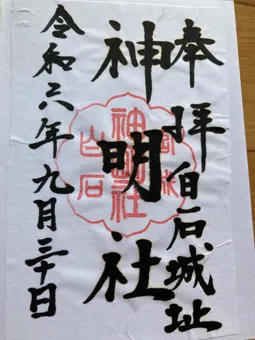 奉拝 白石城址
神明社
令和六年九月三十日
神明社
白石